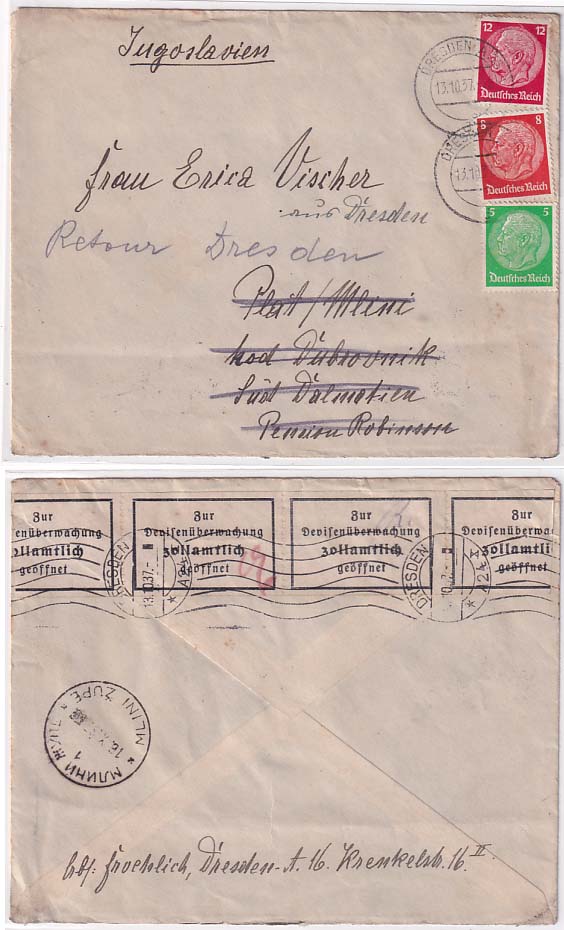 Jugoslavien
12 12
Deutsches Reich
DRESDEN
13.10.37.
8 8
Deutsches Reich
DRESDEN
13.10
5 5
Deutsches Reich
Frau Erica Vischer
aus Dresden
Retour Dresden
Plat/Mlini
kod Dubrovnik
Süd Dalmatien
Pension Robinson
Zur Zur Zur Zur
enüberwachung Devisenüberwachung Devisenüberwachung Devisenüberwa
ollamtlich zollamtlich zollamtlich zollamtlich
geöffnet geöffnet geöffnet geöffnet
DRESDEN
13.10.37.-
* A24
DRESDEN
10.37.-
* A24 X
* МЛИНИ
1
MLINI ZUPE *
Abs: Froehlich, Dresden-A. 16. Krenkelstr. 16 II